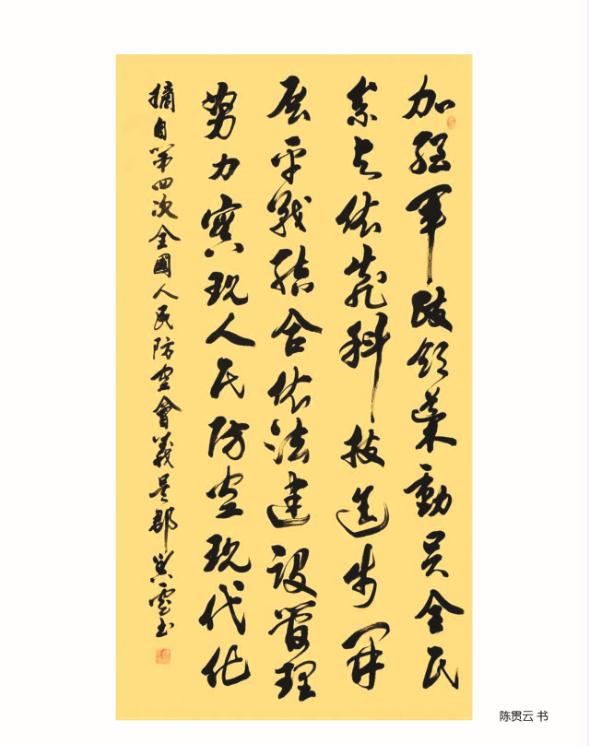 加强军政领导動员全民
参与依靠科技进步开
展平战结合依法建设管理
努力实现人民防空现代化
摘自第四次全國人民防空會議吴郡贯雲书
陈贯云 书